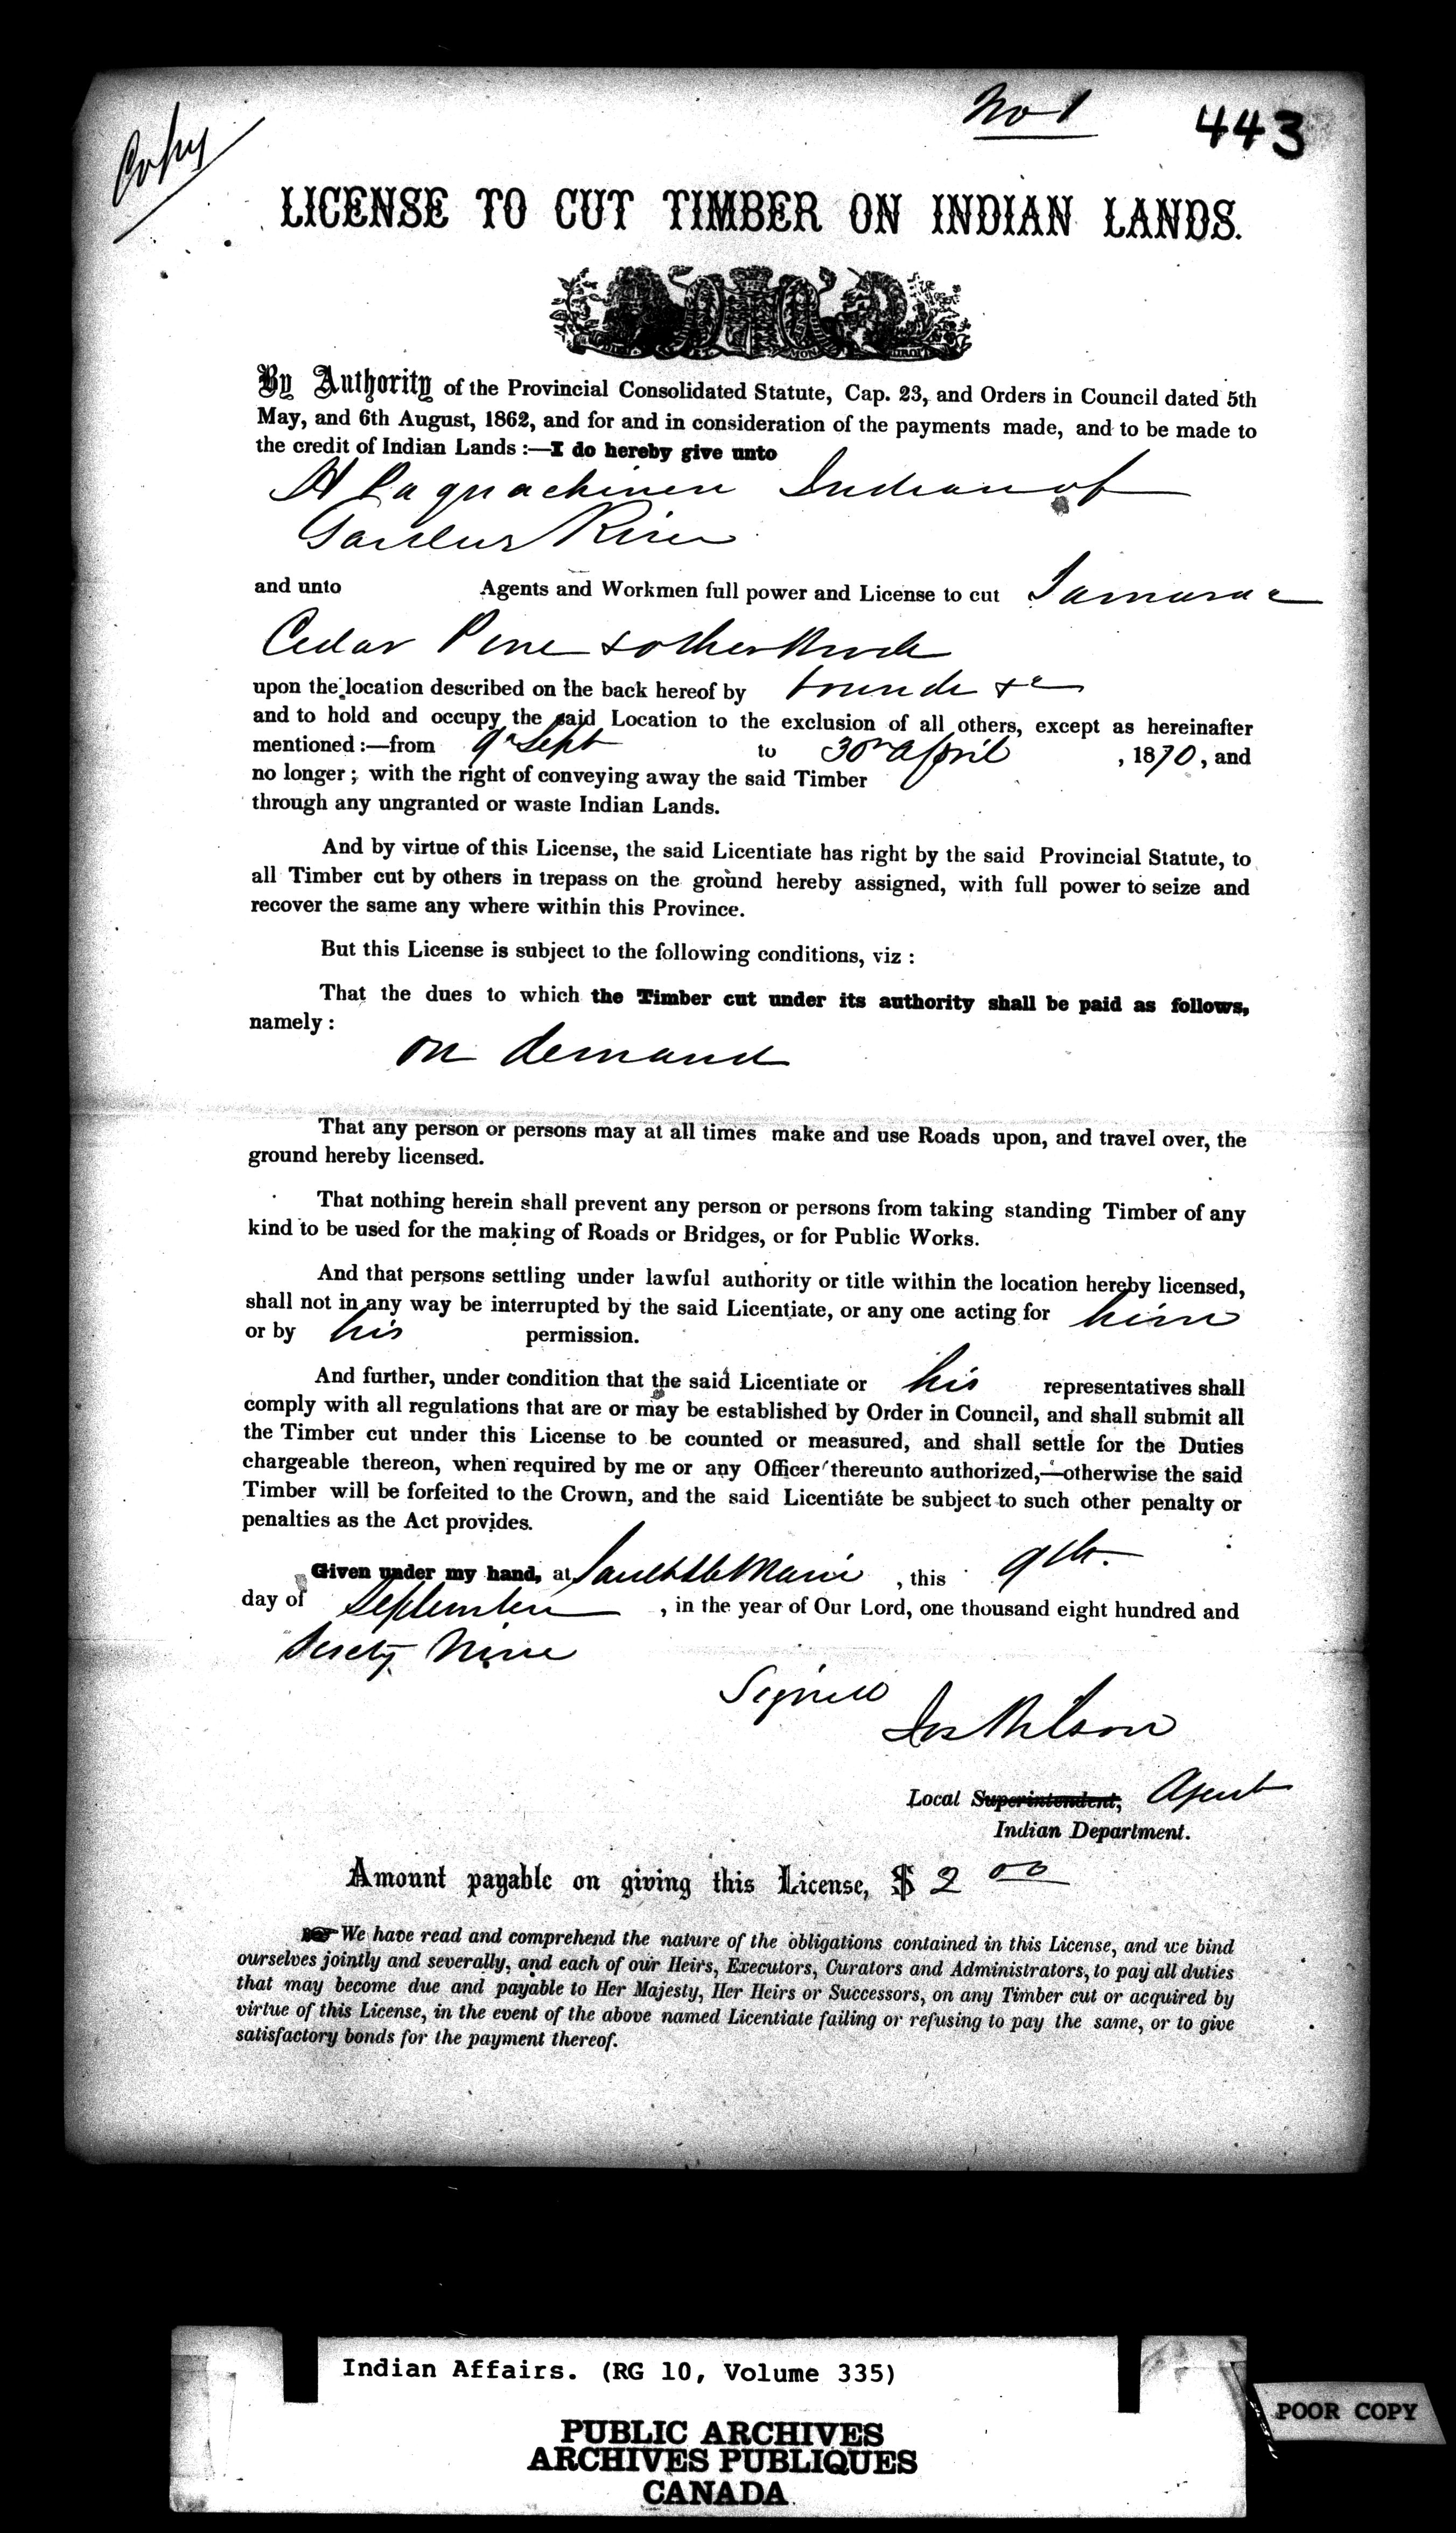 Copy
No 1
443
LICENSE TO CUT TIMBER ON INDIAN LANDS.
By Authority of the Provincial Consolidated Statute, Cap. 23, and Orders in Council dated 5th
May, and 6th August, 1862, and for and in consideration of the payments made, and to be made to
the credit of Indian Lands :—I do hereby give unto
Indian of
Garden River
and unto Agents and Workmen full power and License to cut Tamarac
Cedar Pine & other
upon the location described on the back hereof by bounds &c
and to hold and occupy the said Location to the exclusion of all others, except as hereinafter
mentioned :—from 9th Sept to 30th April , 1870, and
no longer; with the right of conveying away the said Timber
through any ungranted or waste Indian Lands.
And by virtue of this License, the said Licentiate has right by the said Provincial Statute, to
all Timber cut by others in trepass on the ground hereby assigned, with full power to seize and
recover the same any where within this Province.
But this License is subject to the following conditions, viz :
That the dues to which the Timber cut under its authority shall be paid as follows,
namely :
on demand
That any person or persons may at all times make and use Roads upon, and travel over, the
ground hereby licensed.
That nothing herein shall prevent any person or persons from taking standing Timber of any
kind to be used for the making of Roads or Bridges, or for Public Works.
And that persons settling under lawful authority or title within the location hereby licensed,
shall not in any way be interrupted by the said Licentiate, or any one acting for him
or by his permission.
And further, under condition that the said Licentiate or his representatives shall
comply with all regulations that are or may be established by Order in Council, and shall submit all
the Timber cut under this License to be counted or measured, and shall settle for the Duties
chargeable thereon, when required by me or any Officer thereunto authorized,—otherwise the said
Timber will be forfeited to the Crown, and the said Licentiate be subject to such other penalty or
penalties as the Act provides.
Given under my hand, at Sault Ste Marie , this 9th.
day of September , in the year of Our Lord, one thousand eight hundred and
Sixty Nine
Signed
Jos Wilson
Local Superintendent, Agent
Indian Department.
Amount payable on giving this License, $ 2 00
We have read and comprehend the nature of the obligations contained in this License, and we bind
ourselves jointly and severally, and each of our Heirs, Executors, Curators and Administrators, to pay all duties
that may become due and payable to Her Majesty, Her Heirs or Successors, on any Timber cut or acquired by
virtue of this License, in the event of the above named Licentiate failing or refusing to pay the same, or to give
satisfactory bonds for the payment thereof.
Indian Affairs. (RG 10, Volume 335)
PUBLIC ARCHIVES
ARCHIVES PUBLIQUES
CANADA
POOR COPY